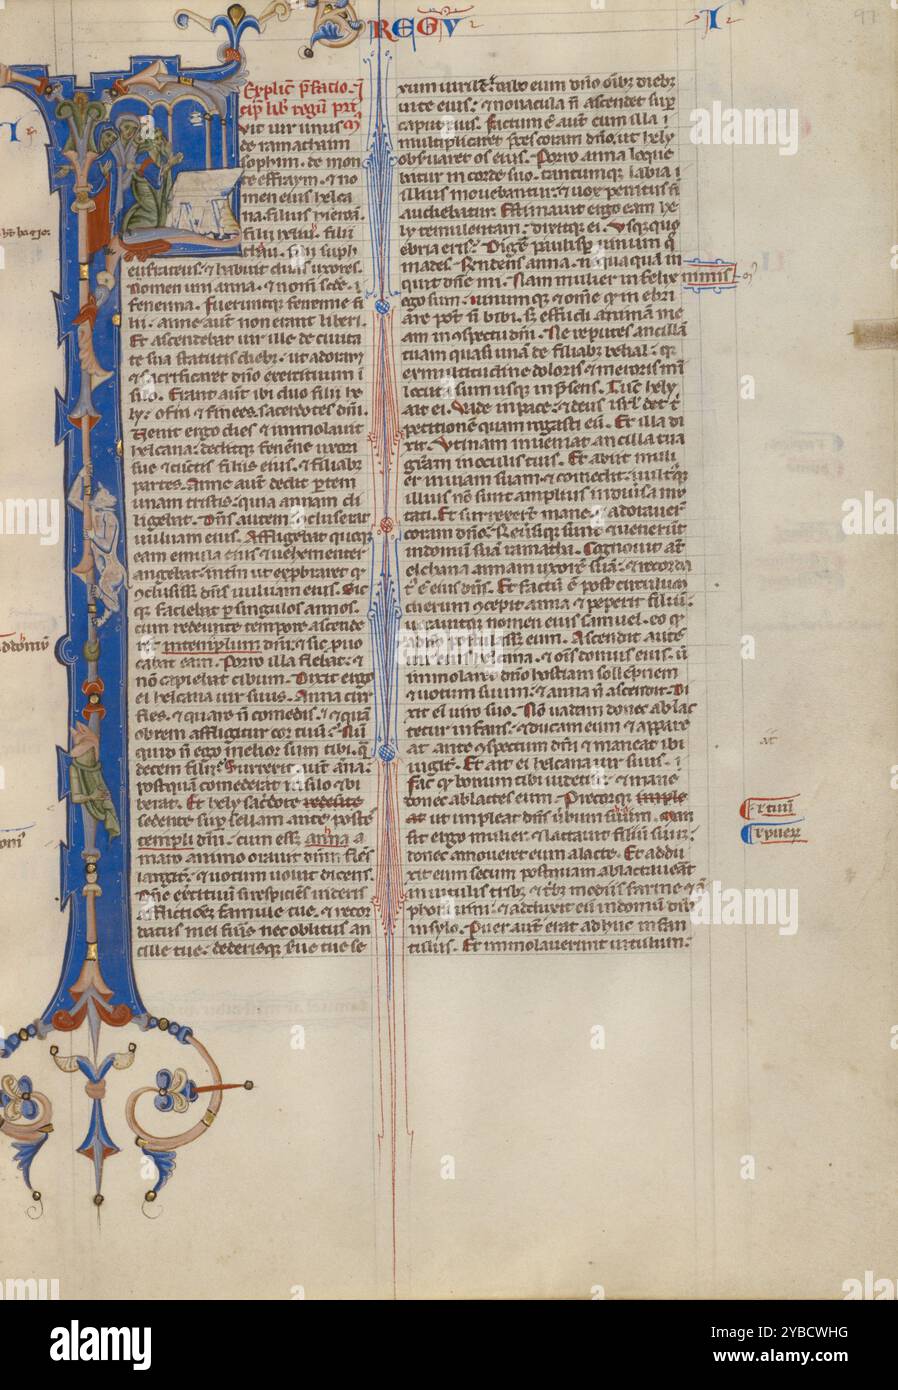 REGV
I
97
Explic̄ p̄fatio. ī
cip̄ lib̄ regū prī
vir unus
de ramathaim
sophim. de mon
te effraym. & no
men eius helca
na. filius
filii heliu. filii
thau. filii suph
eufrateus. & habuit duas uxores.
Nomen uni anna. & nom̄ scd̄e. i
fenenna. Fueruntq; fenenne fi
lii. anne aut̄ non erant liberi.
Et ascendebat uir ille de ciuita
te sua statutis dieb;. ut adoraret
& sacrificaret dn̄o exercituum ī
silo. Erant aut̄ ibi duo filii he
ly. ofni & finees. sacerdotes dn̄i.
Uenit ergo dies & immolauit
helcana. deditq; fenēne uxori
sue & cūctis filiis eius. & filiab;
partes. Anne aut̄ dedit p̄tem
unam tristis. quia annam di
ligebat. Dn̄s autem ꝯcluserat
uuluam eius. Affligebat quoq;
eam emula eius & uehementer
angebat. intm̄ ut exp̄braret qꝫ
ꝯclusiss& dn̄s uuluam eius. Sic
qꝫ faciebat p̄ singulos annos.
cum redeunte tempore ascende
ret in templum dn̄i. & sic p̄uo
cabat eam. Porro illa flebat. &
n̄ capiebat cibum. Dixit ergo
ei helcana uir suus. Anna cur
fles. & quare n̄ comedis. & quā
obrem affligitur cor tuū. Nū
quid n̄ ego melior sum tibi. q̄
decem filii. Surrexit aut̄ āna.
postquā comederat in silo & bi
berat. Et hely sac̄dote
sedente sup̄ sellam ante postes
templi dn̄i. cum ess& anna a
maro animo orauit dn̄m flēs
largit̄. & uotum uouit dicens.
Dn̄e exercituū si respiciens uideris
afflictionē famule tue. & recor
datus mei fueris nec oblitus an
cille tue. dederisq; serue tue se
xum uirilē. dabo eum dn̄o oīb; dieb;
uite eius. & nouacula n̄ ascendet sup̄
caput eius. Factum ē aut̄ cum illa
multiplicaret p̄ces coram dn̄o. ut hely
obs̄uaret os eius. Porro anna loque
batur in corde suo. tantumq; labia i
llius mouebantur. & uox penitus n̄
audiebatur. Estimauit ergo eam he
ly temulentam. dixitq; ei. Usq;quo
ebria eris. Digere paulisp̄ uinum q̄
mades. Respondens anna. nequaquā in
quit dn̄e mi. Nam mulier infelix nimis
ego sum. uinumq; & om̄e qꝫ inebri
are pot̄ n̄ bibi. S; effudi animam me
am in ꝯspectu dn̄i. Ne reputes ancillā
tuam quasi unā de filiab; belial. qꝫ
ex multitudine doloris & meroris mī
locuta sum usq; in p̄sens. Tūc hely
ait ei. Vade in pace. & deus isrl̄ det t̄
petitionē quam rogasti eū. Et illa di
xit. Utinam inueniat ancilla tua
gr̄am in oculis tuis. Et abiit muli
er in uiam suam. & comedit. uultq;
illius nō sunt amplius in diuersa mu
tati. Et surrexerūt mane. & adorauer̄
coram dn̄o. Reuersiq; sunt & uenerūt
in domū suā ramatha. Cognouit aūt
elchana annam uxorē suā. & recorda
t; ē eius dn̄s. Et factū ē post circulum
dierum ꝯcepit anna & peperit filiū.
uocauitq; nomen eius samuel. eo qꝫ
a dn̄o postulass& eum. Ascendit autē
uir eius helcana. & om̄is domus eius. ut
immolaret dn̄o hostiam sollēpnem
& uotum suum. & anna n̄ ascendit. Di
xit ei uiro suo. Nō uadam donec ablac
tetur infans. & ducam eum & appare
at ante ꝯspectum dn̄i & maneat ibi
iugit̄. Et ait ei helcana uir suus.
fac qꝫ bonum tibi uidetur. & mane
donec ablactes eum. Precorq;
ut impleat dn̄s ūbum suum. Man
sit ergo mulier & lactauit filiū suū.
donec amoueret eum a lacte. Et addu
xit eum secum postquam ablactauerat
in uitulis trib; & trib; modiis farine & ā
phora uini. & adduxit eū in domū dn̄i
in sylo. Puer aut̄ erat adhuc infan
tulus. Et immolauerunt uitulum.
alamy
Image ID: 2YBCWHG
www.alamy.com